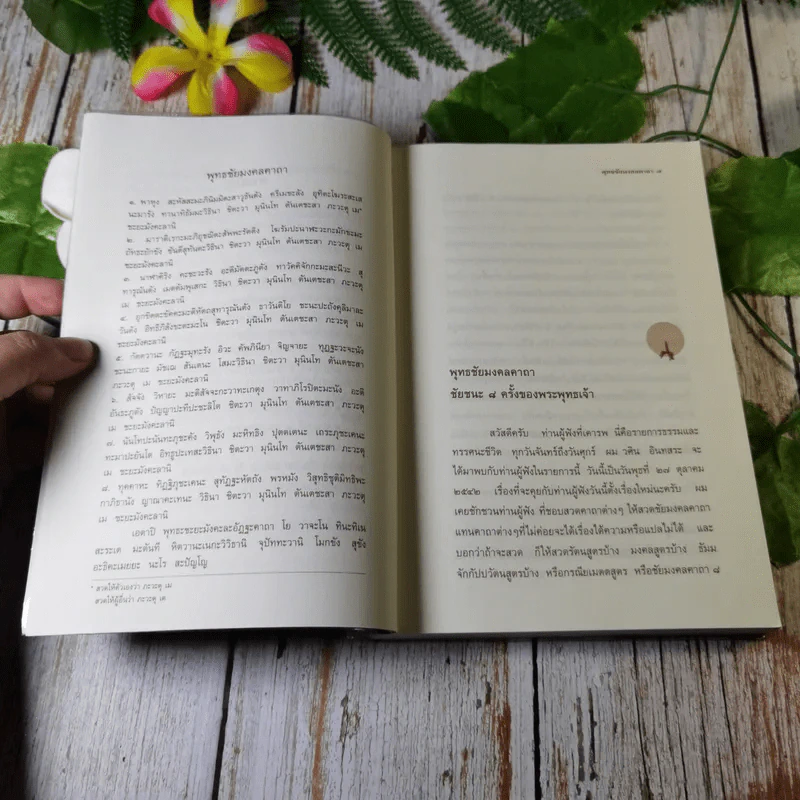 พุทธชัยมงคลคาถา
๑. พาหุง สะหัสสะมะภินิมมิตะสาวุธันตัง ครีเมขะลัง อุทิตะโฆระสะเส
นะมารัง ทานาทิธัมมะวิธินา ชิตะวา มุนินโท ตันเตชะสา ภะวะตุ เม*
ชะยะมังคะลานิ
๒. มาราติเรกะมะภิยุชฌิตะสัพพะรัตติง โฆรัมปะนาฬะวะกะมักขะมะ
ถัทธะยักขัง ขันตีสุทันตะวิธินา ชิตะวา มุนินโท ตันเตชะสา ภะวะตุ เม
ชะยะมังคะลานิ
๓. นาฬาคิริง คะชะวะรัง อะติมัตตะภูตัง ทาวัคคิจักกะมะสะนีวะ สุ
ทารุณันตัง เมตตัมพุเสกะ วิธินา ชิตะวา มุนินโท ตันเตชะสา ภะวะตุ
เม ชะยะมังคะลานิ
๔. อุกขิตตะขัคคะมะติหัตถะสุทารุณันตัง ธาวันติโย ชะนะปะถังคุลิมาละ
วันตัง อิทธีภิสังขะตะมะโน ชิตะวา มุนินโท ตันเตชะสา ภะวะตุ เม
ชะยะมังคะลานิ
๕. กัตตวานะ กัฏฐะมุทะรัง อิวะ คัพภินียา จิญจายะ ทุฏฐะวะจะนัง
ชะนะกายะ มัชเฌ สันเตนะ โสมะวิธินา ชิตะวา มุนินโท ตันเตชะสา
ภะวะตุ เม ชะยะมังคะลานิ
๖. สัจจัง วิหายะ มะติสัจจะกะวาทะเกตุง วาทาภิโรปิตะมะนัง อะติ
อันธะภูตัง ปัญญาปะทีปะชะลิโต ชิตะวา มุนินโท ตันเตชะสา ภะวะตุ
เม ชะยะมังคะลานิ
๗. นันโทปะนันทะภุชะคัง วิพุธัง มะหิทธิง ปุตตเตนะ เถระภุชะเคนะ
ทะมาปะยันโต อิทธูปะเทสะวิธินา ชิตะวา มุนินโท ตันเตชะสา ภะวะตุ
เม ชะยะมังคะลานิ
๘. ทุคคาหะ ทิฏฐิภุชะเคนะ สุทัฏฐะหัตถัง พรหมัง วิสุทธิชุติมิทธิพะ
กาภิธานัง ญาณาคะเทนะ วิธินา ชิตะวา มุนินโท ตันเตชะสา ภะวะตุ
เม ชะยะมังคะลานิ
เอตาปิ พุทธะชะยะมังคะละอัฏฐะคาถา โย วาจะโน ทินะทิเน
สะระเต มะตันที หิตวานะเนกะวิวิธานิ จุปัททะวานิ โมกขัง สุขัง
อะธิคะเมยยะ นะโร สะปัญโญ
* สวดให้ตัวเองว่า ภะวะตุ เม
สวดให้ผู้อื่นว่า ภะวะตุ เต
พุทธชัยมงคลคาถา ๗
พุทธชัยมงคลคาถา
ชัยชนะ ๘ ครั้งของพระพุทธเจ้า
สวัสดีครับ ท่านผู้ฟังที่เคารพ นี่คือรายการธรรมและ
ทรรศนะชีวิต ทุกวันจันทร์ถึงวันศุกร์ ผม วศิน อินทสระ จะ
ได้มาพบกับท่านผู้ฟังในรายการนี้ วันนี้เป็นวันพุธที่ ๒๗ ตุลาคม
๒๕๔๒ เรื่องที่จะคุยกับท่านผู้ฟังวันนี้ตั้งเรื่องใหม่นะครับ ผม
เคยชักชวนท่านผู้ฟัง ที่ชอบสวดคาถาต่างๆ ให้สวดชัยมงคลคาถา
แทนคาถาต่างๆที่ไม่ค่อยจะได้เรื่องได้ความหรือแปลไม่ได้ และ
บอกว่าถ้าจะสวด ก็ให้สวดรัตนสูตรบ้าง มงคลสูตรบ้าง ธัมม
จักกัปปวัตนสูตรบ้าง หรือกรณียเมตตสูตร หรือชัยมงคลคาถา ๘